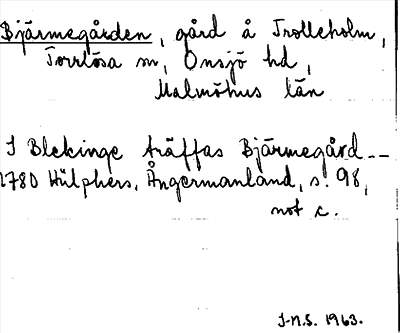 Bjärmegården, gård å Trolleholm,
Torrlösa sn, Onsjö hd,
Malmöhus län
I Blekinge träffas Bjärmegård --
1780 Hülphers, Ångermanland, s. 98,
not c.
J-n.S. 1963.